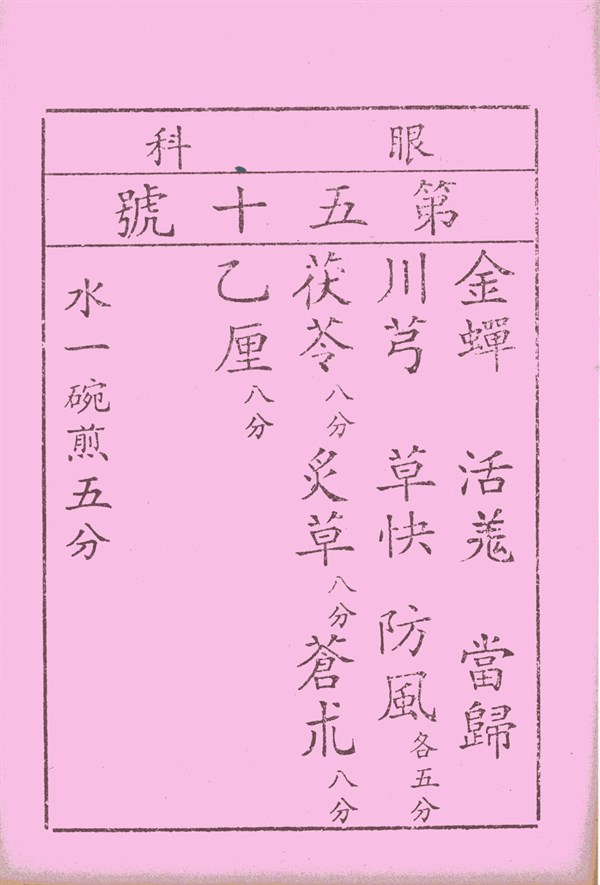 眼科
第五十號
金蟬 活羗 當歸
川芎 草快 防風各五分
茯苓八分 炙草八分 蒼朮八分
乙厘八分
水一碗煎五分